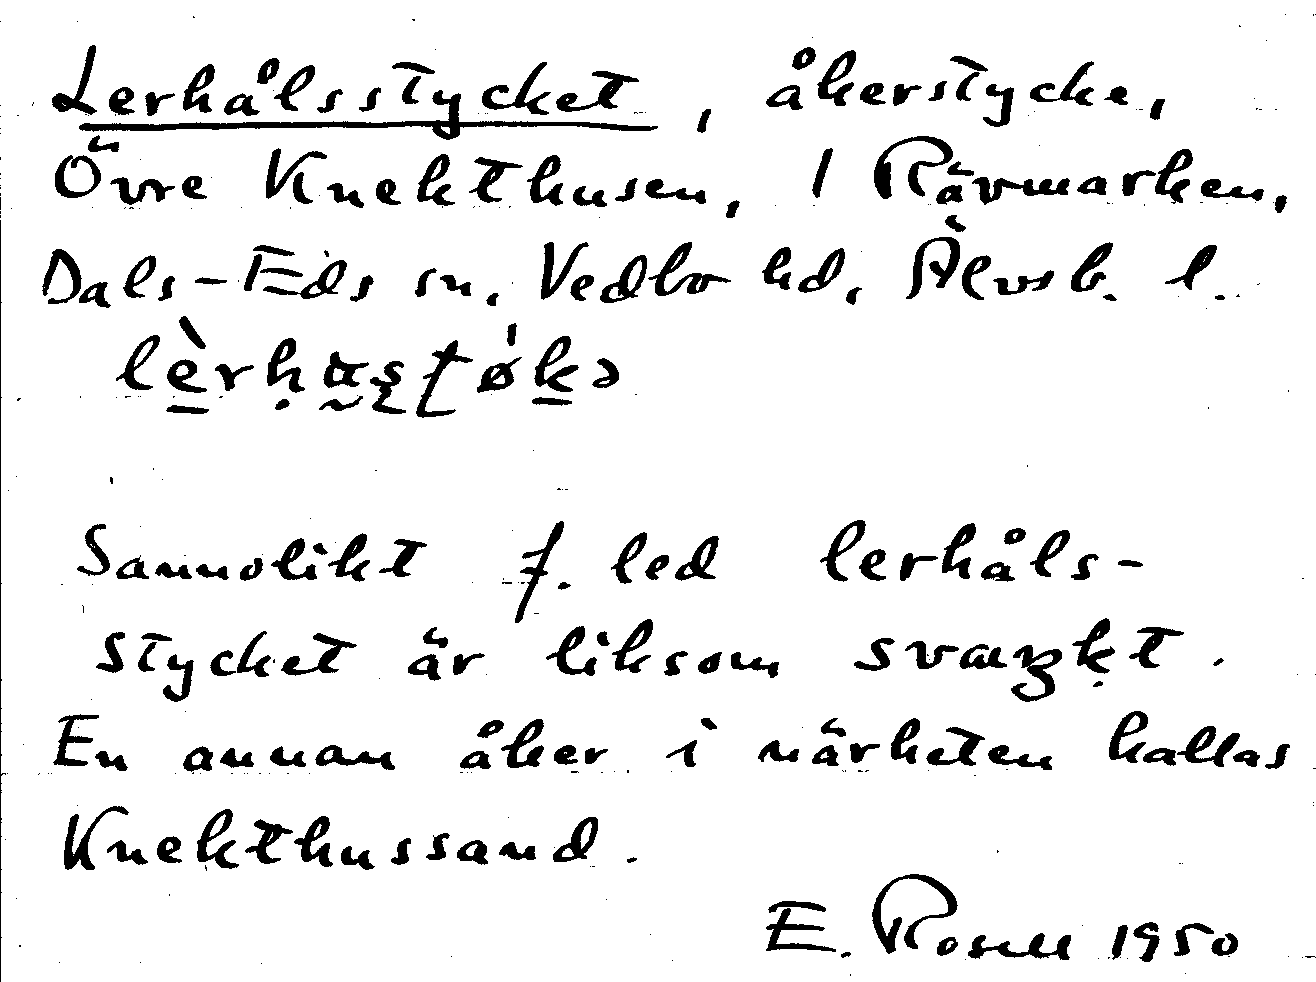 Lerhålsstycket, åkerstycke,
Övre Knekthusen, 1 Rävmarken,
Dals-Eds sn, Vedbo hd, Älvsb. l.
Sannolikt f. led lerhåls-
stycket är liksom svagkt.
En annan åker i närheten kallas
Knekthussand.
E. Rosell 1950